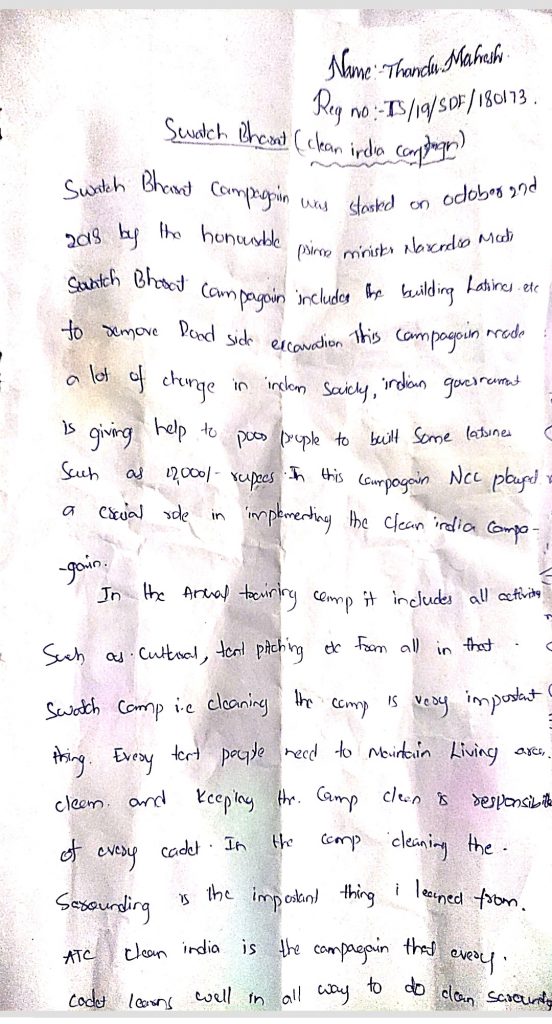 Name:-Thandu.Mahesh.
Reg no:-TS/19/SDF/180173.
Swatch Bharat (clean india campaign)
Swatch Bharat Campagain was started on october 2nd
2018 by the honourable prime minister Narendra Modi
Swatch Bharat campagain includes the building Latrines etc
to remove Road side excavation This campagain made
a lot of change in indian Society, indian government
is giving help to poor people to built Some latrines
Such as 12,000/- rupees. In this campagain NCC played
a crucial role in implementing the clean india campa-
-gain.
In the Annual training camp it includes all activity
Such as cultural, tent pitching etc from all in that
Swatch camp i.e cleaning the camp is very important
thing. Every tent people need to Maintain Living area.
cleem. and Keeping the. Camp clean is responsibilit
of every cadet. In the camp cleaning the.
Sarounding is the important thing i learned from.
ATC clean india is the campaegain that every.
cadet learns well in all way to do clean saroundi